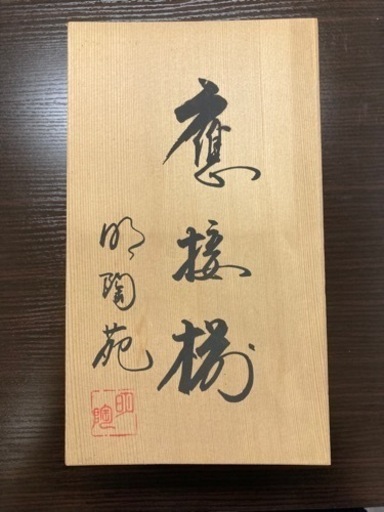 應接揃
明陶苑
明陶